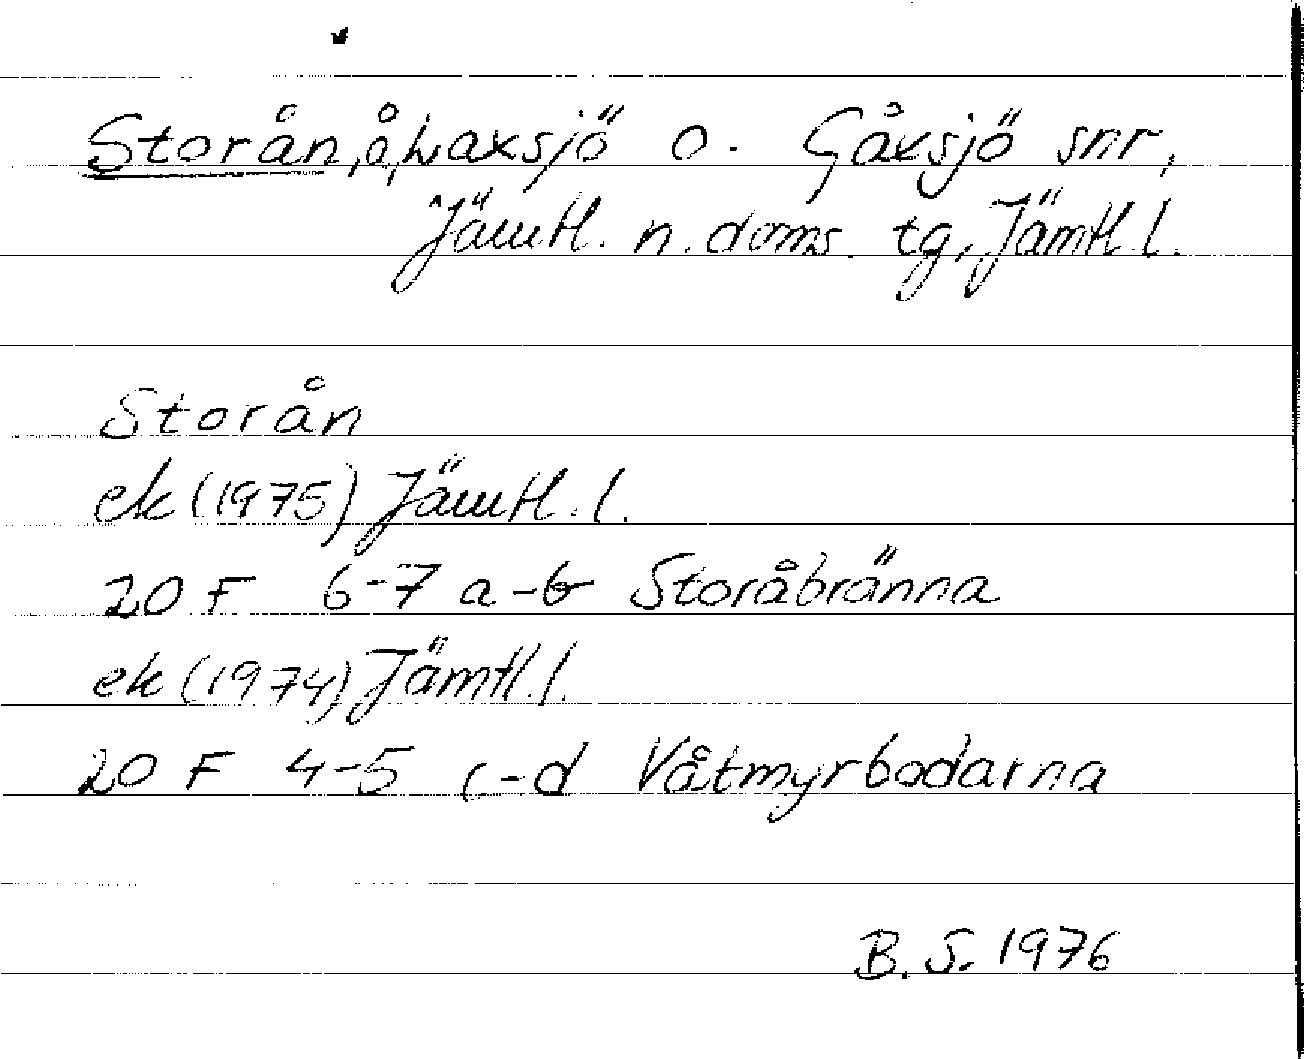 Storån, å, Laxsjö o. Gåxsjö snr,
Jämtl. n. doms. tg, Jämtl. l.
Storån
ek (1975) Jämtl. l.
20 F 6-7 a-b Storåbränna
ek (1974) Jämtl. l.
20 F 4-5 c-d Våtmyrbodarna
B. S. 1976